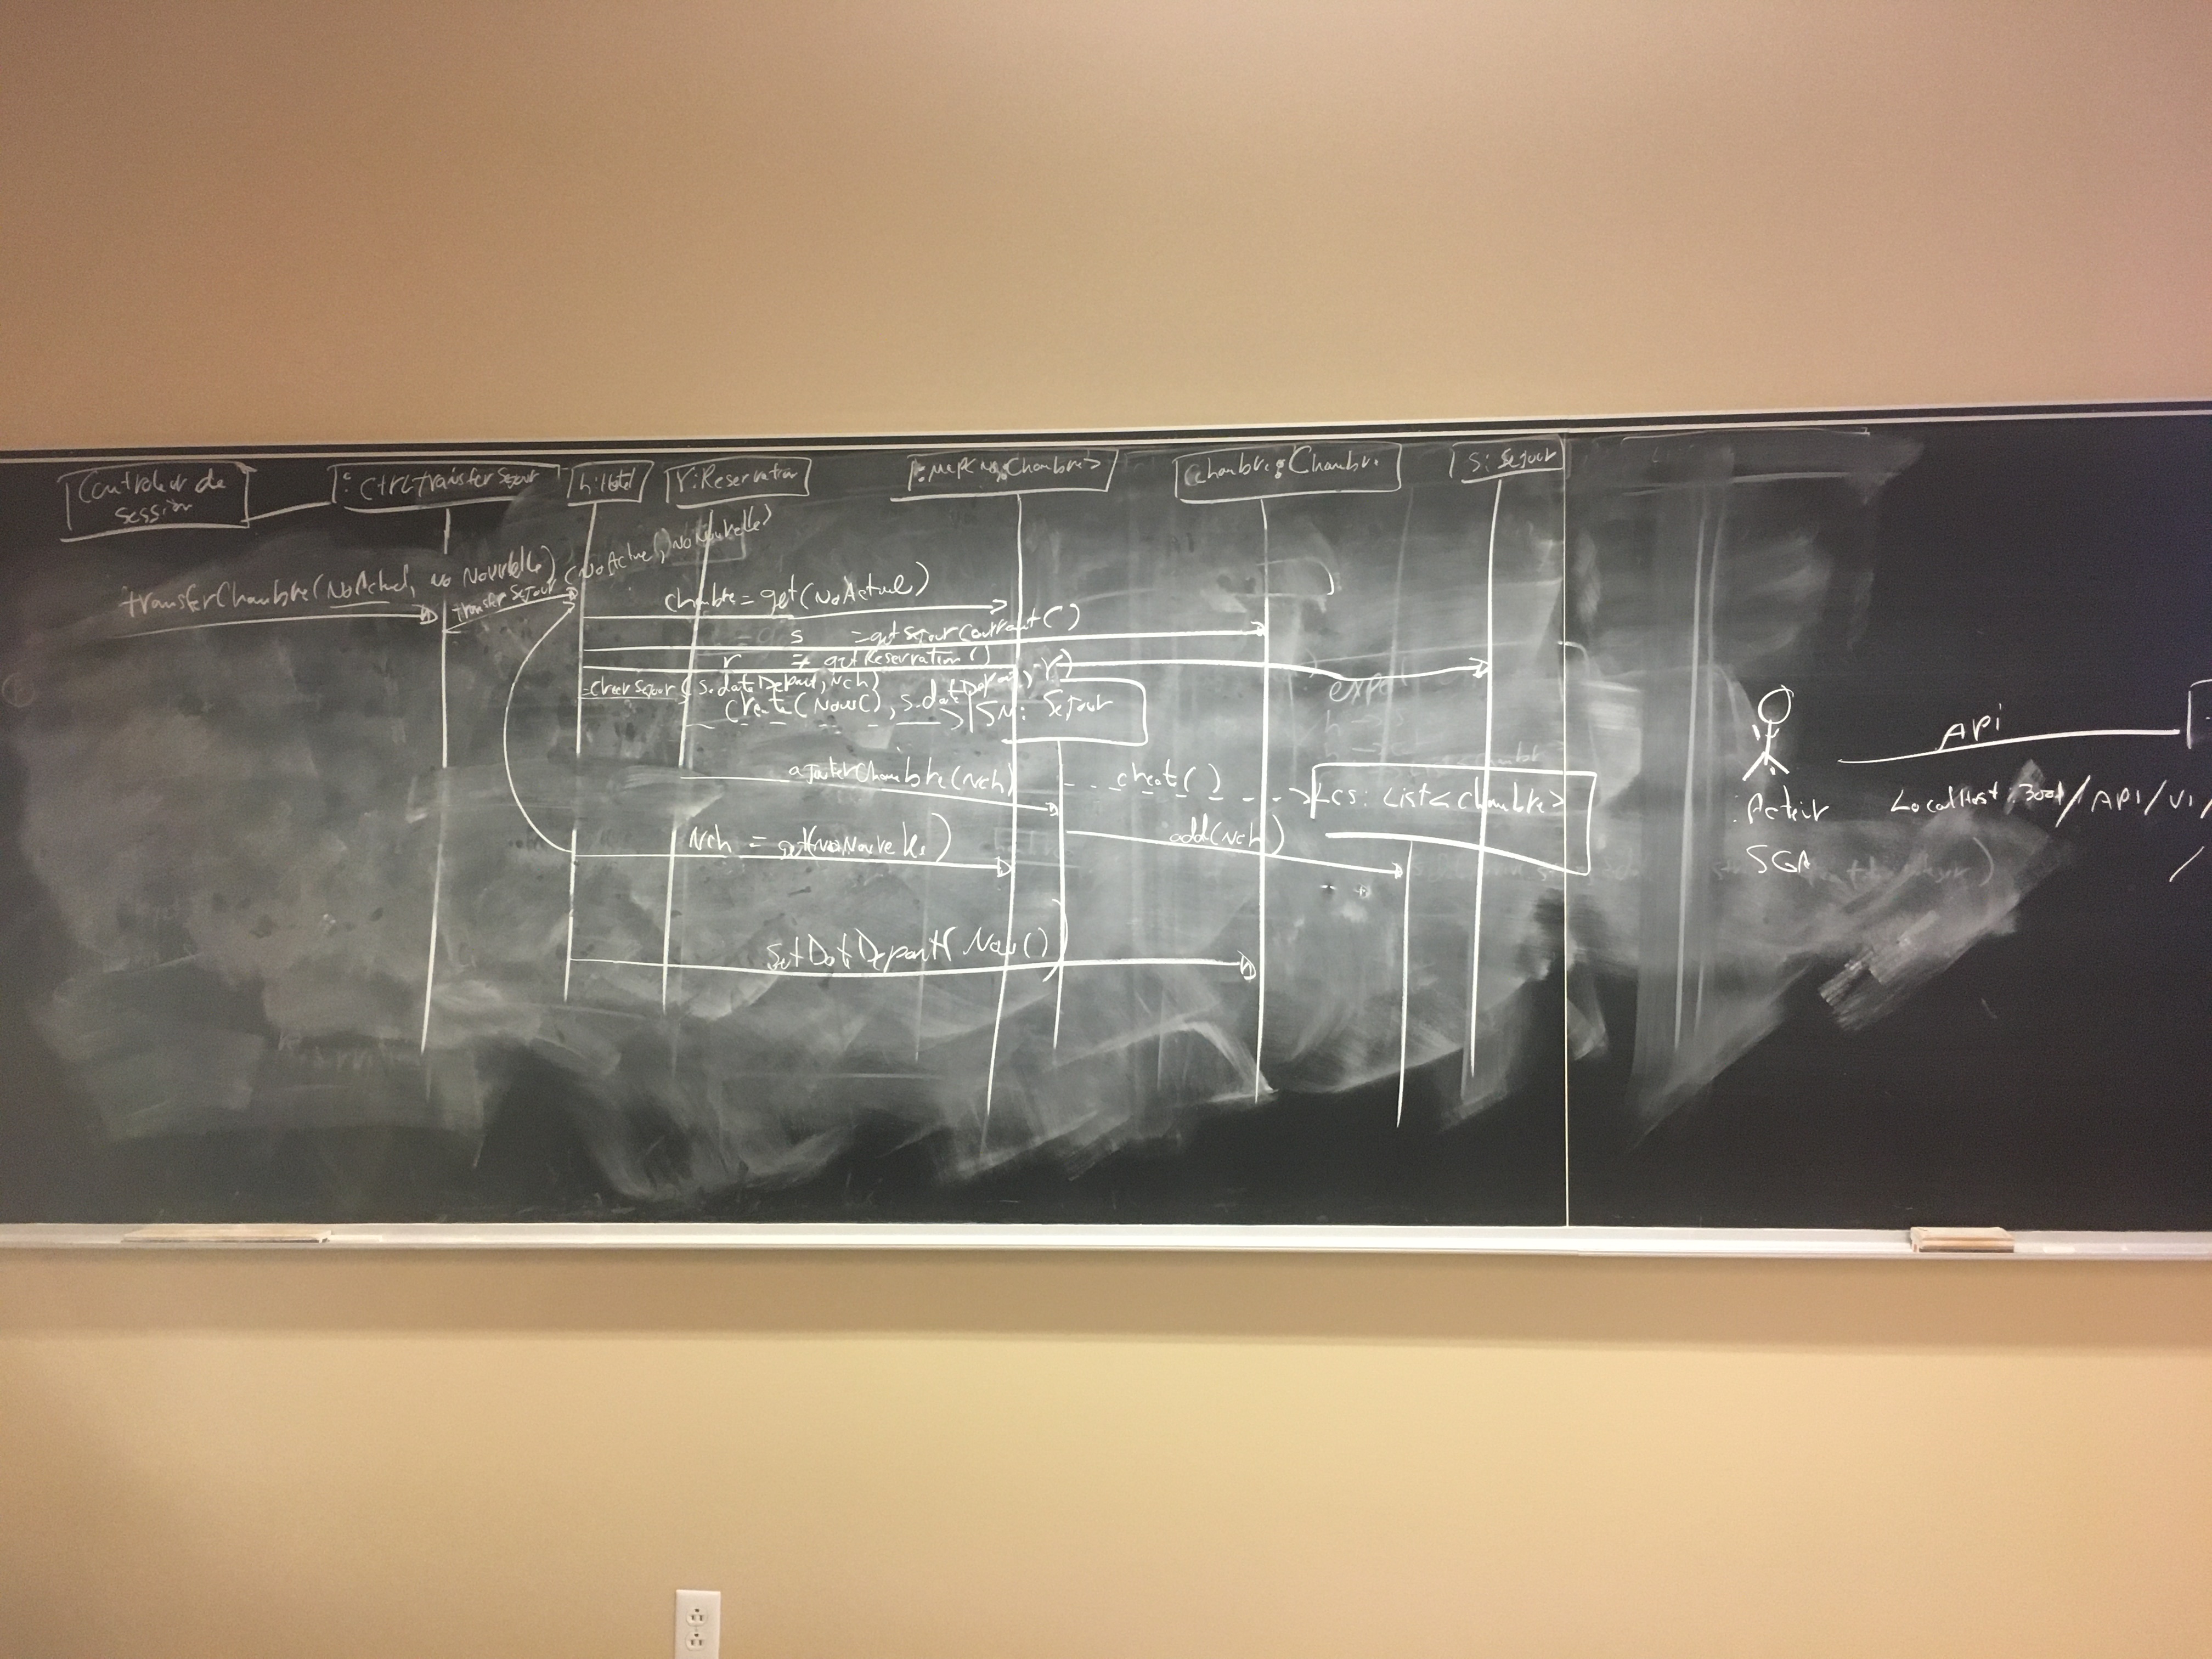 Controleur de
session
: CtrlTransferSejour
h:Hotel
r:Reservation
:Map<no,Chambre>
Chambre:Chambre
S: Sejour
transferChambre(NoActuel, no Nouvelle)
transferSejour(NoActuel, NoNouvelle)
chambre = get(NoActuel)
s = getSejourCourrant()
r = getReservation()
creerSejour(s.dateDepart, Nch)
create(Now(), s.dateDepart, r)
SN: Sejour
ajouterChambre(Nch)
creat()
LCS: List<Chambre>
Nch = get(NoNouvelle)
add(Nch)
setDatDepart(Now())
API
:Acteur
SGA
LocalHost:3001/API/V1/
/